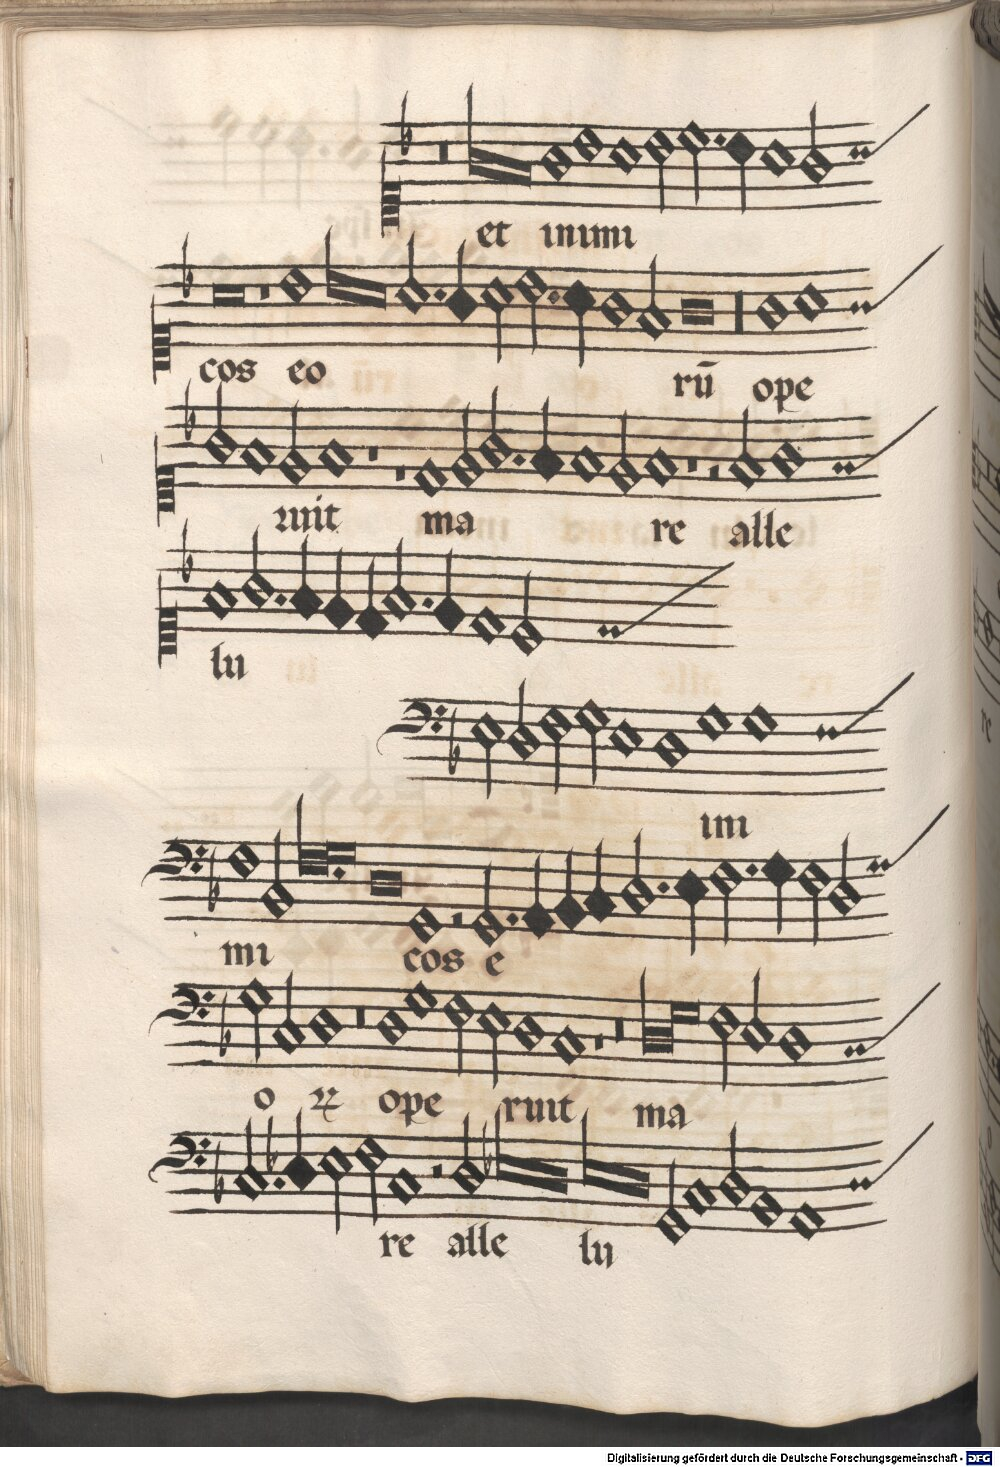 et inimi
cos eo rū ope
ruit ma re alle
lu
ini
mi cos e
o ꝝ ope ruit ma
re alle lu
Digitalisierung gefördert durch die Deutsche Forschungsgemeinschaft - DFG